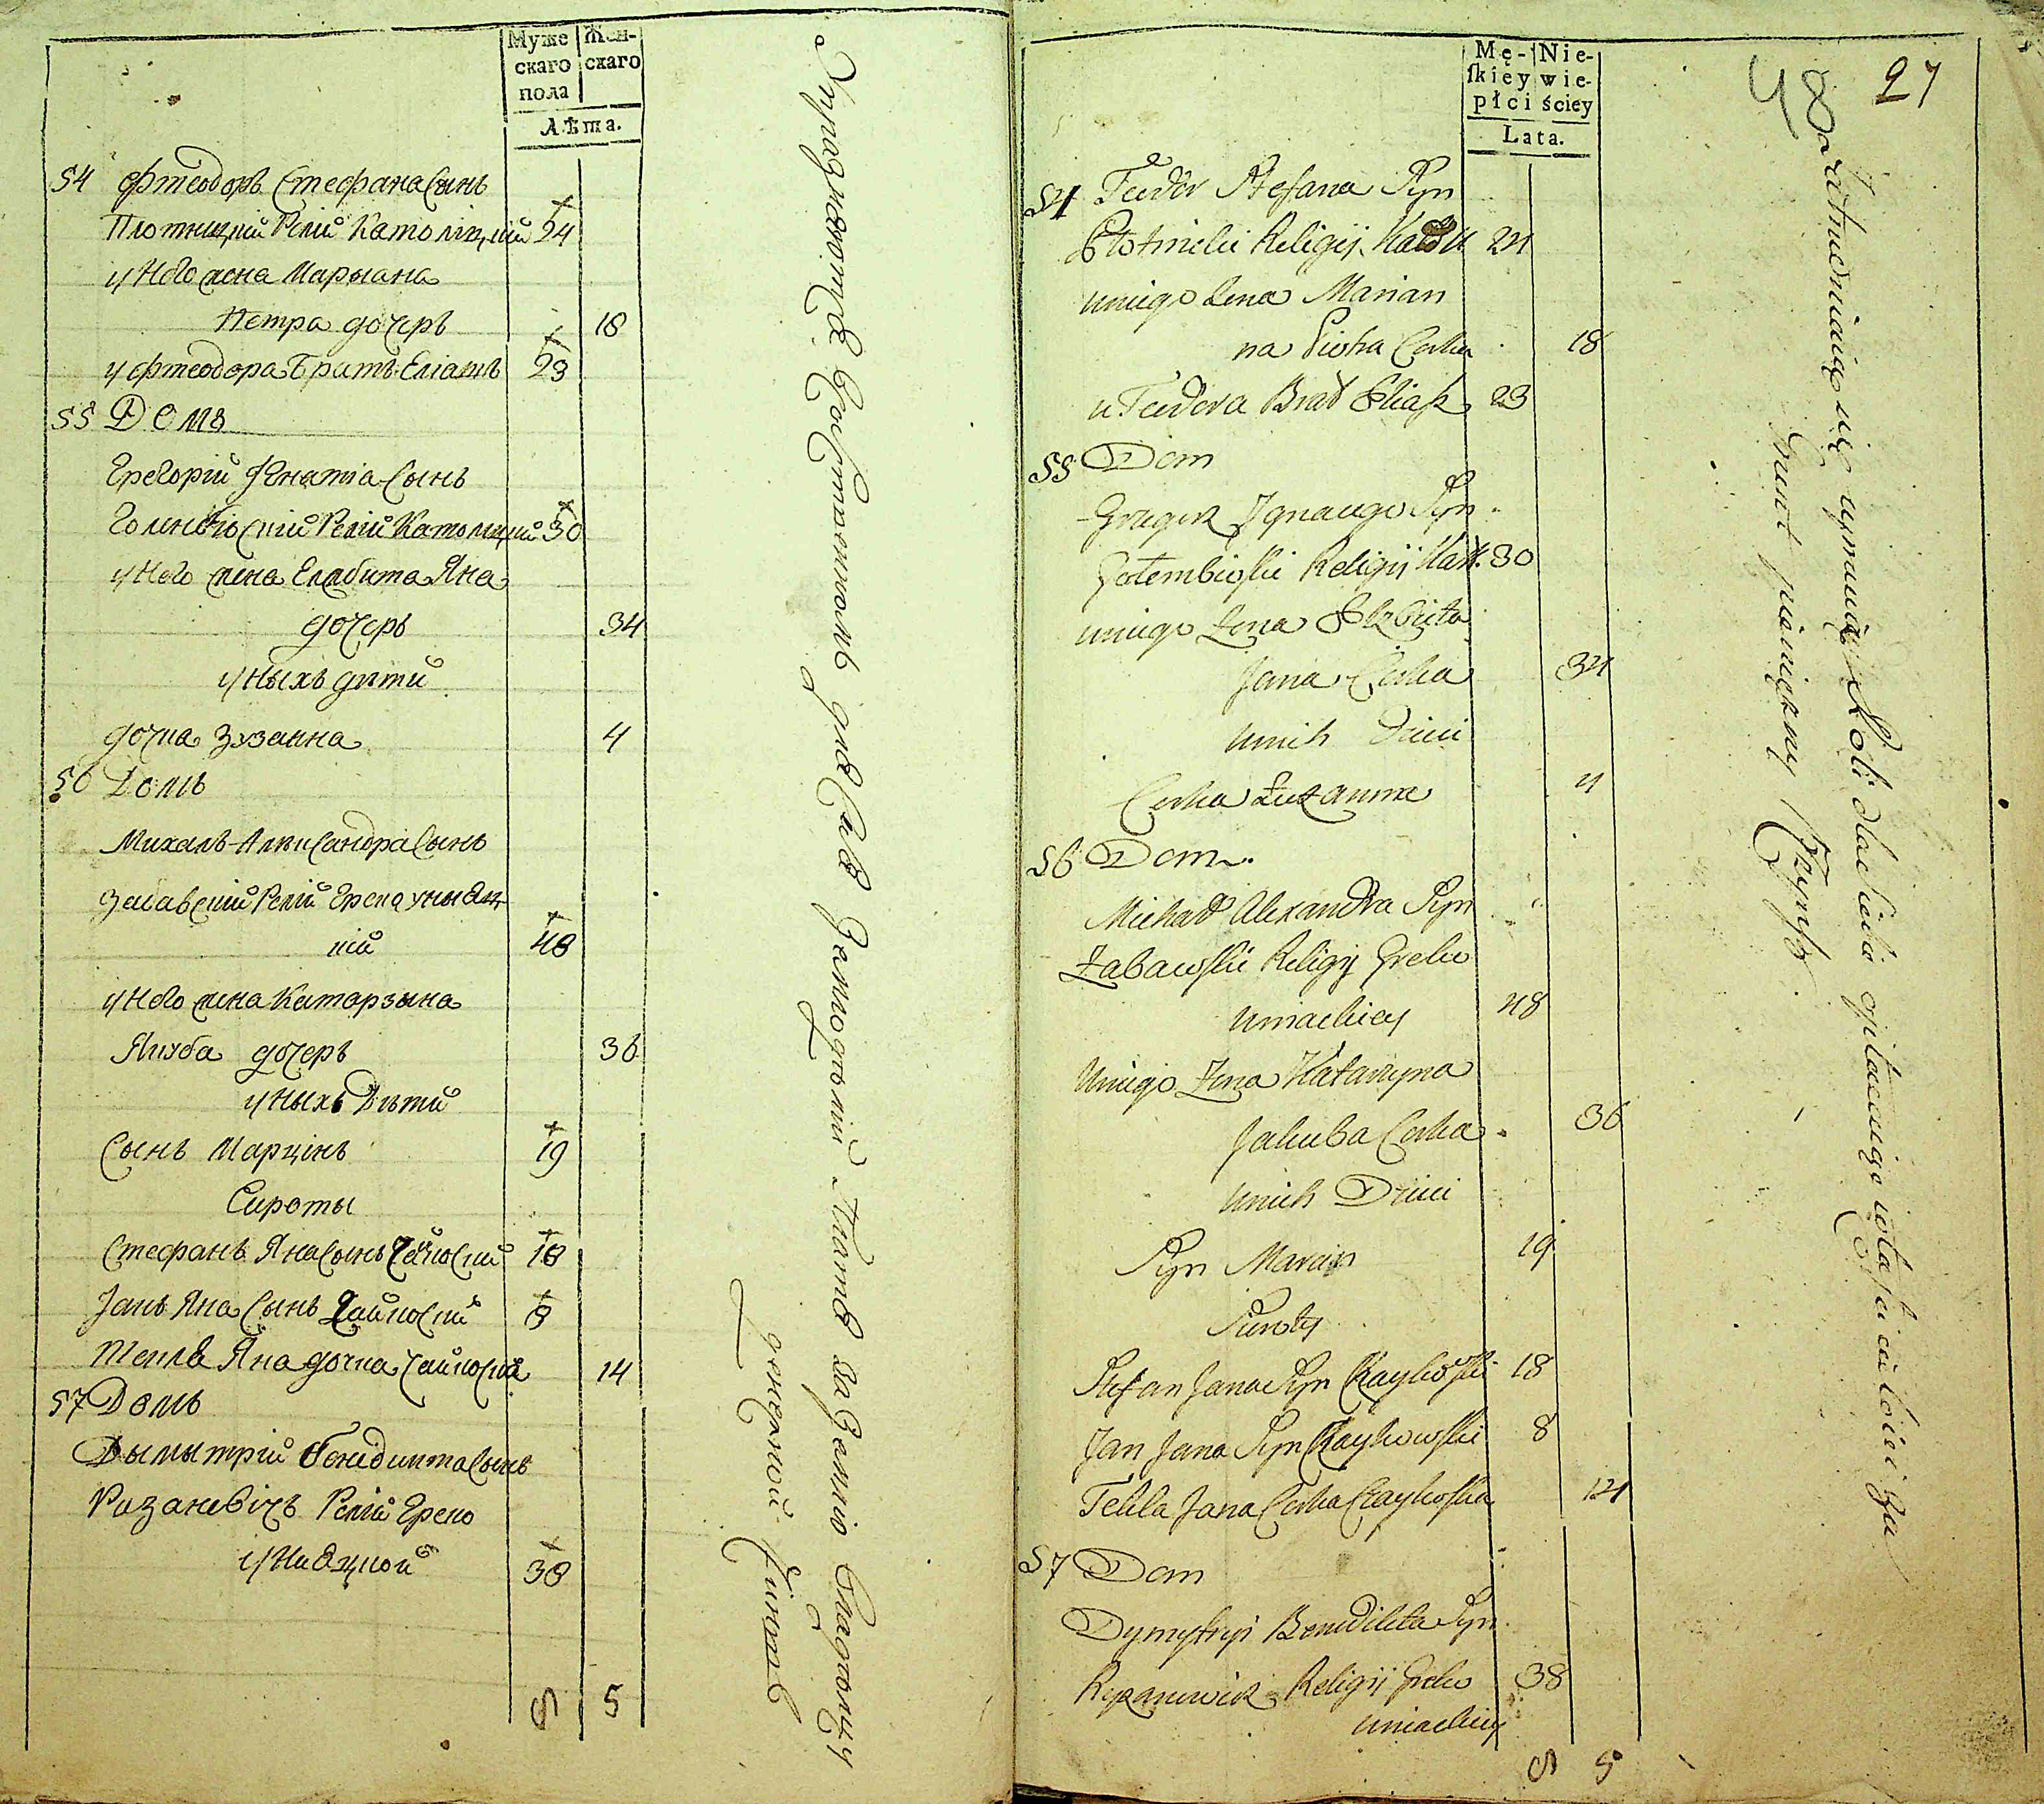 Муже Жен-
скаго скаго
пола
Лѣта.
54 Фтеодоръ Стефана Сынъ
Плотницкій Релій Католіцкій 24
у Него жена Марыана
Петра дочеръ 18
у Фтеодора Братъ Еліашъ 23
55 Домъ
Грегорій Игнатіа Сынъ
Голембіоскій Релій Католицкій 30
у Него жена Елжбита Яна
дочеръ 34
у Ныхъ дѣти
дочка Зузанна 4
56 Домъ
Михалъ Александра Сынъ
Забавскій Релій Греко униац-
кій 48
у Него жена Катарзына
Якуба дочеръ 36
у Ныхъ Дѣти
Сынъ Марцінъ 19
Сироты
Стефанъ Яна Сынъ Чайкоскій 18
Јанъ Яна Сынъ Чайкоскій 8
Текля Яна дочка Чайкоска 14
57 Домъ
Дымытрій Бенедикта Сынъ
Рызаневичъ Релій Греко
у Ниацкой 38
9 5
Упражняются
для Сѣбя
за Землю
Мę- Nie-
ſkiey wie-
płci ściey
Lata.
48
27
54 Teodor Stefana Syn
Płotnicki Religij Kato 24
uniego Żena Marian
na Piotra Corka 18
u Teodora Brat Eliasz 23
55 Dom
Grzegorz Jgnacego Syn
Gołembioski Religij Kat. 30
uniego Żena Elzbieta
Jana Corka 34
unich Dzieci
Corka Zuzanna 4
56 Dom
Michał Alexandra Syn
Zabawski Religij Greko
uniackiey 48
Uniego Żena Katarzyna
Jakuba Corka 36
unich Dzieci
Syn Marcin 19
Sieroty
Stefan Jana Syn Czaykoski 18
Jan Jana Syn Czaykowski 8
Tekla Jana Corka Czaykoska 14
57 Dom
Dymytryi Benedikta Syn
Ryzaniewicz Religij Greko 38
uniackiey
9 5
Zatrudniaią się uprawą Roli dla siebie opłacaiąc właścicielowi za
Grunt pieniężny Czynsz